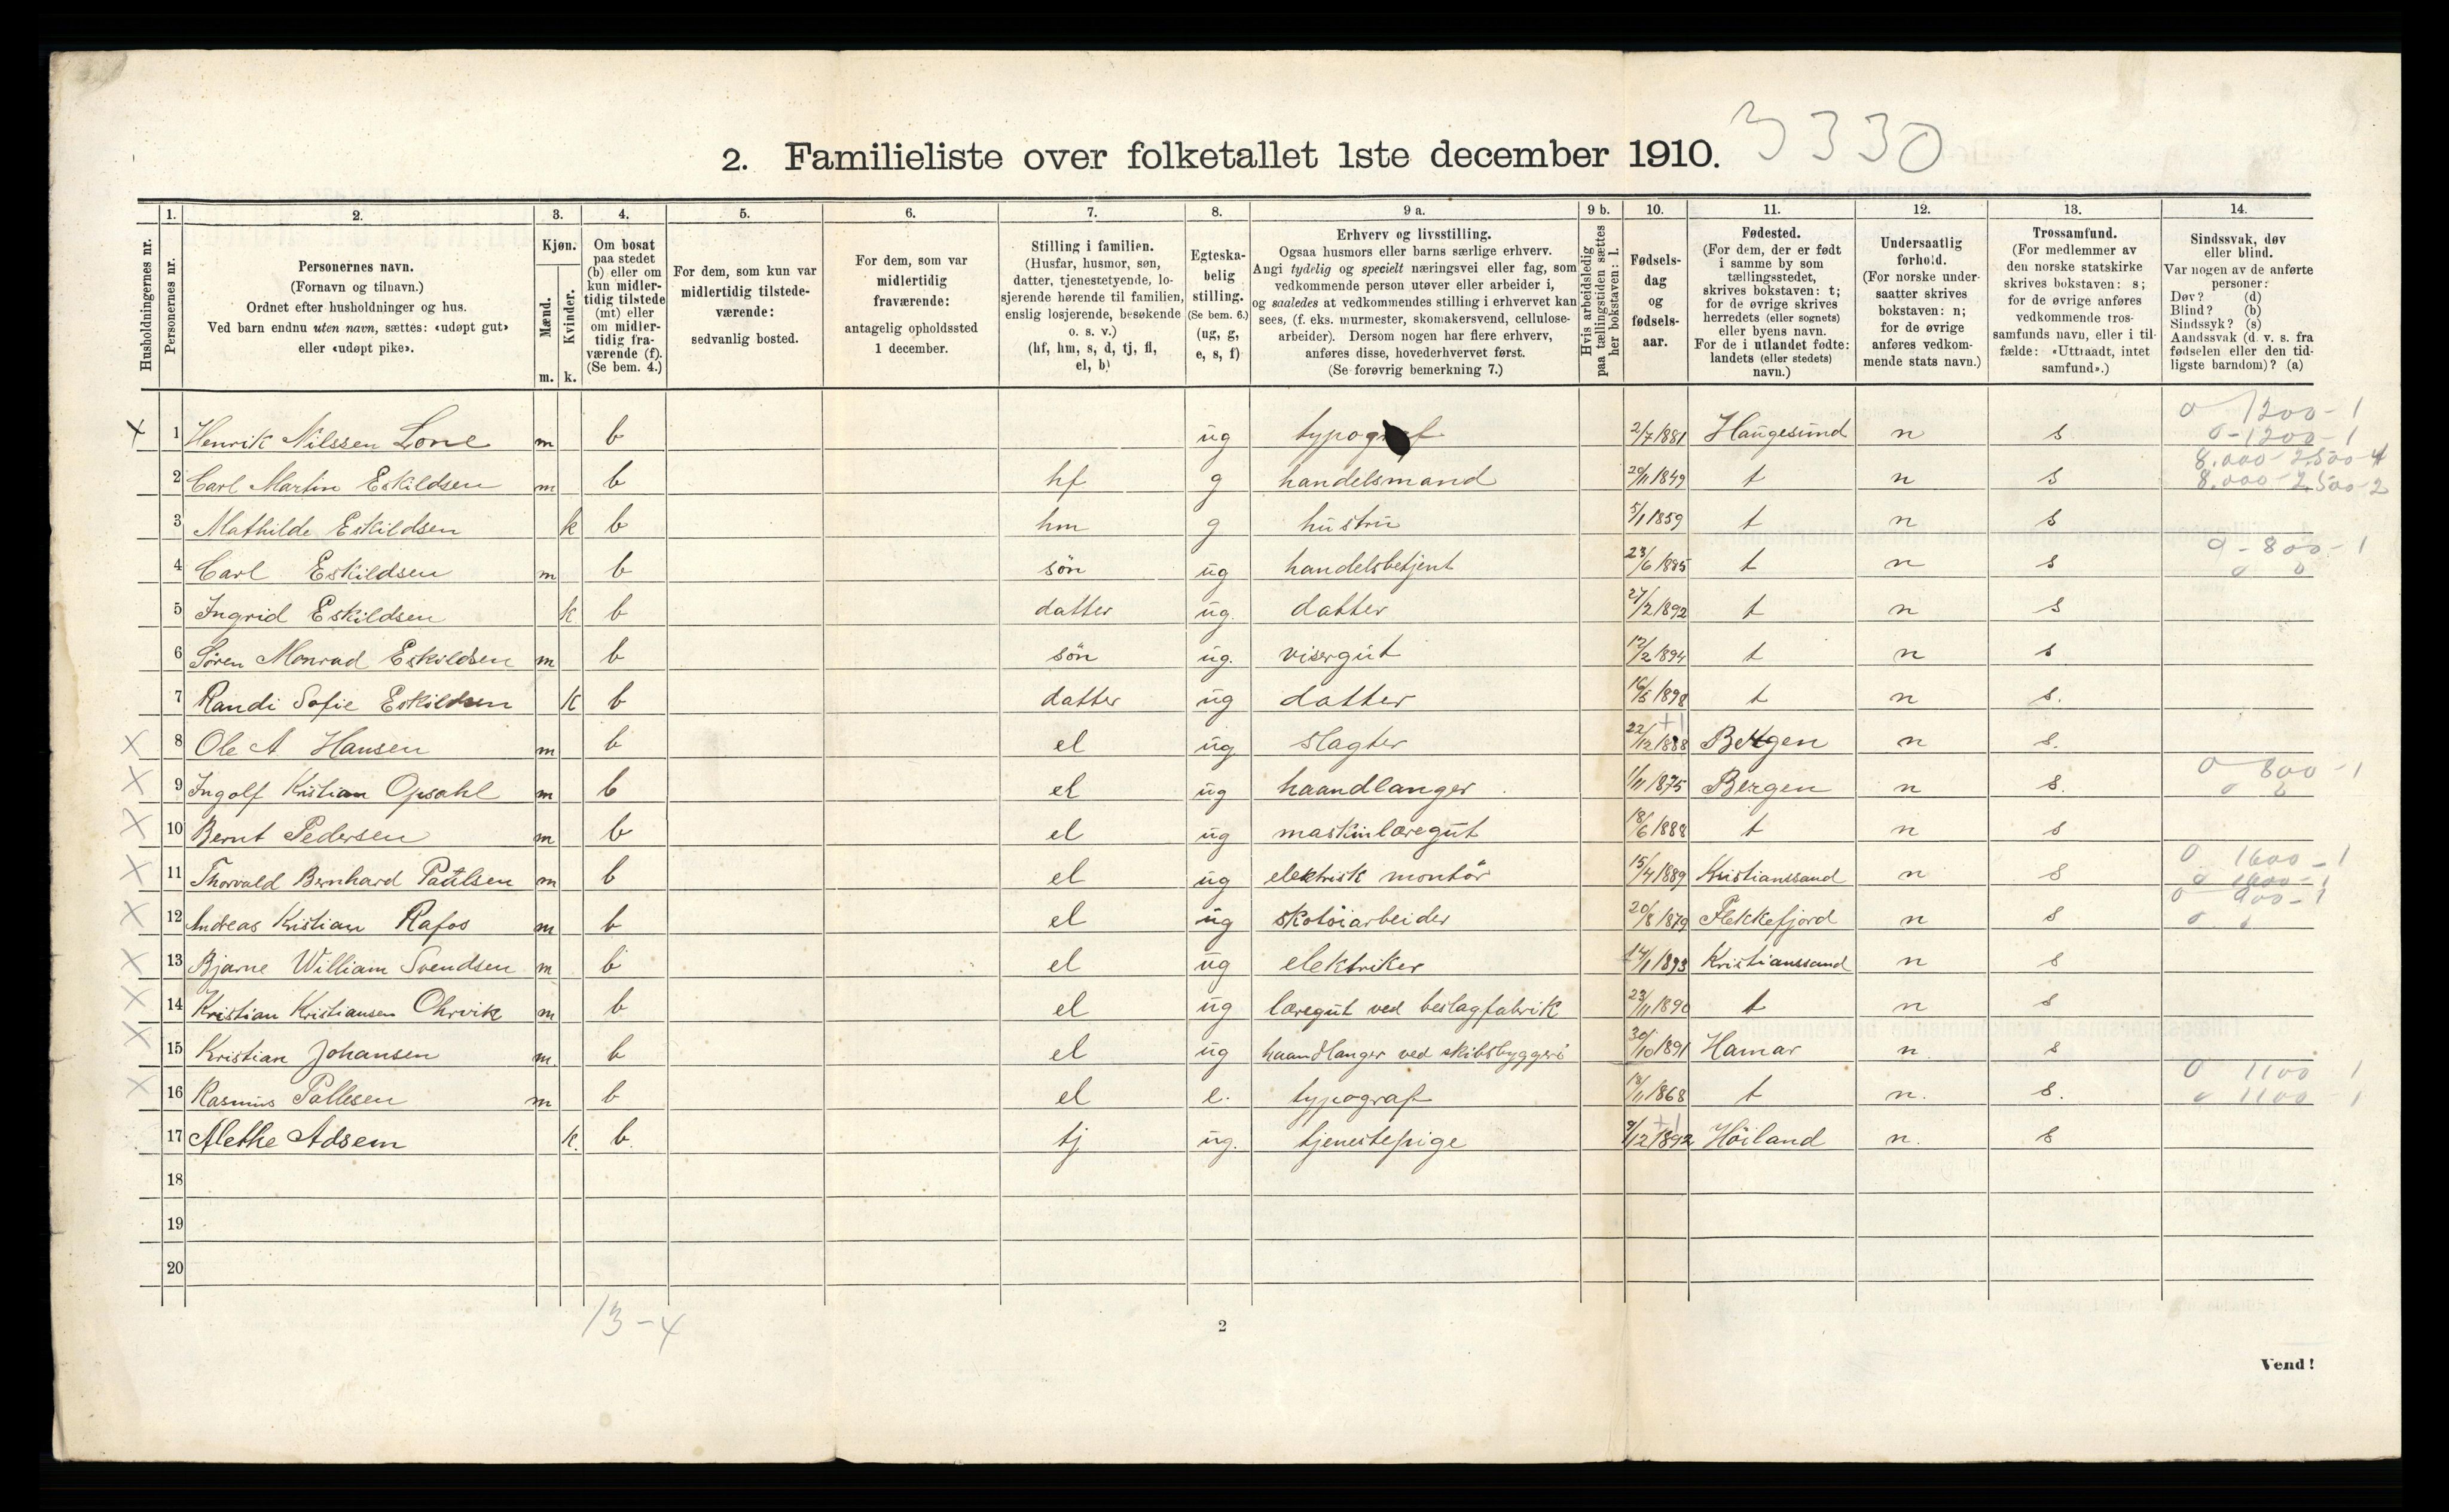 3330
2. Familieliste over folketallet 1ste december 1910.
Husholdningernes nr.
1. Personernes nr.
2. Personernes navn.
(Fornavn og tilnavn.)
Ordnet efter husholdninger og hus.
Ved barn endnu uten navn, sættes: «udøpt gut»
eller «udøpt pike».
3. Kjøn.
Mænd. Kvinder.
m. k.
4. Om bosat
paa stedet
(b) eller om
kun midler-
tidig tilstede
(mt) eller
om midler-
tidig fra-
værende (f).
(Se bem. 4.)
5. For dem, som kun var
midlertidig tilstede-
værende:
sedvanlig bosted.
6. For dem, som var
midlertidig
fraværende:
antagelig opholdssted
1 december.
7. Stilling i familien.
(Husfar, husmor, søn,
datter, tjenestetyende, lo-
sjerende hørende til familien,
enslig losjerende, besøkende
o. s. v.)
(hf, hm, s, d, tj, fl,
el, b)
8. Egteska-
belig
stilling.
(Se bem. 6.)
(ug, g,
e, s, f)
9 a. Erhverv og livsstilling.
Ogsaa husmors eller barns særlige erhverv.
Angi tydelig og specielt næringsvei eller fag, som
vedkommende person utøver eller arbeider i,
og saaledes at vedkommendes stilling i erhvervet kan
sees, (f. eks. murmester, skomakersvend, cellulose-
arbeider). Dersom nogen har flere erhverv,
anføres disse, hovederhvervet først.
(Se forøvrig bemerkning 7.)
9 b. Hvis arbeidsledig
paa tællingstiden sættes
her bokstaven: l.
10. Fødsels-
dag
og
fødsels-
aar.
11. Fødested.
(For dem, der er født
i samme by som
tællingsstedet,
skrives bokstaven: t;
for de øvrige skrives
herredets (eller sognets)
eller byens navn.
For de i utlandet fødte:
landets (eller stedets)
navn.)
12. Undersaatlig
forhold.
(For norske under-
saatter skrives
bokstaven: n;
for de øvrige
anføres vedkom-
mende stats navn.)
13. Trossamfund.
(For medlemmer av
den norske statskirke
skrives bokstaven: s;
for de øvrige anføres
vedkommende tros-
samfunds navn, eller i til-
fælde: «Uttraadt, intet
samfund».)
14. Sindssvak, døv
eller blind.
Var nogen av de anførte
personer:
Døv? (d)
Blind? (b)
Sindssyk? (s)
Aandssvak (d. v. s. fra
fødselen eller den tid-
ligste barndom)? (a)
0 1200-1
X 1 Henrik Nilssen Lone m b ug typograf 2/7 1881 Haugesund n s 0-1200-1
8.000-2.500-4
2 Carl Martin Eskildsen m b hf g handelsmand 20/11 1849 t n s 8.000-2.500-2
3 Mathilde Eskildsen k b hm g hustru 5/1 1859 t n s
0-800-1
4 Carl Eskildsen m b sön ug handelsbetjent 23/6 1885 t n s 0 0
5 Ingrid Eskildsen k b datter ug. datter 27/2 1892 t n s
6 Søren Monrad Eskildsen m b sön ug. visergut 12/2 1894 t n s
7 Randi Sofie Eskildsen k b datter ug datter 16/5 1898 t n s.
+1
X 8 Ole A Hansen m b el ug slagter 22/12 1888 Bergen n s.
0 800-1
X 9 Ingolf Kristian Opsahl m b el ug haandlanger 1/11 1875 Bergen n s. 0 0
X 10 Bernt Pedersen m b el ug maskinlæregut 18/6 1888 t n s
0 1600-1
X 11 Thorvald Bernhard Paulsen m b el ug elektrisk montör 15/4 1889 Kristianssand n s 0 1600-1
0 900-1
X 12 Andreas Kristian Rafos m b el ug skotöiarbeider 20/8 1879 Flekkefjord n s 0 0
X 13 Bjarne William Svendsen m b el ug elektriker 14/1 1893 Kristianssand n s
X 14 Kristian Kristiansen Ohrvik m b el ug læregut ved beslagfabrik 23/11 1890 t n s
X 15 Kristian Johansen m. b el ug haandlanger ved skibsbyggeri 30/10 1891 Hamar n. s
0 1100 1
X 16 Rasmus Pallesen m b el e. typograf 18/11 1868 t n. s. 0 1100 1
+1
17 Alethe Adsem k. b. tj ug. tjenestepige 9/12 1892 Höiland n. s
18
19
20
13-4
2
Vend!